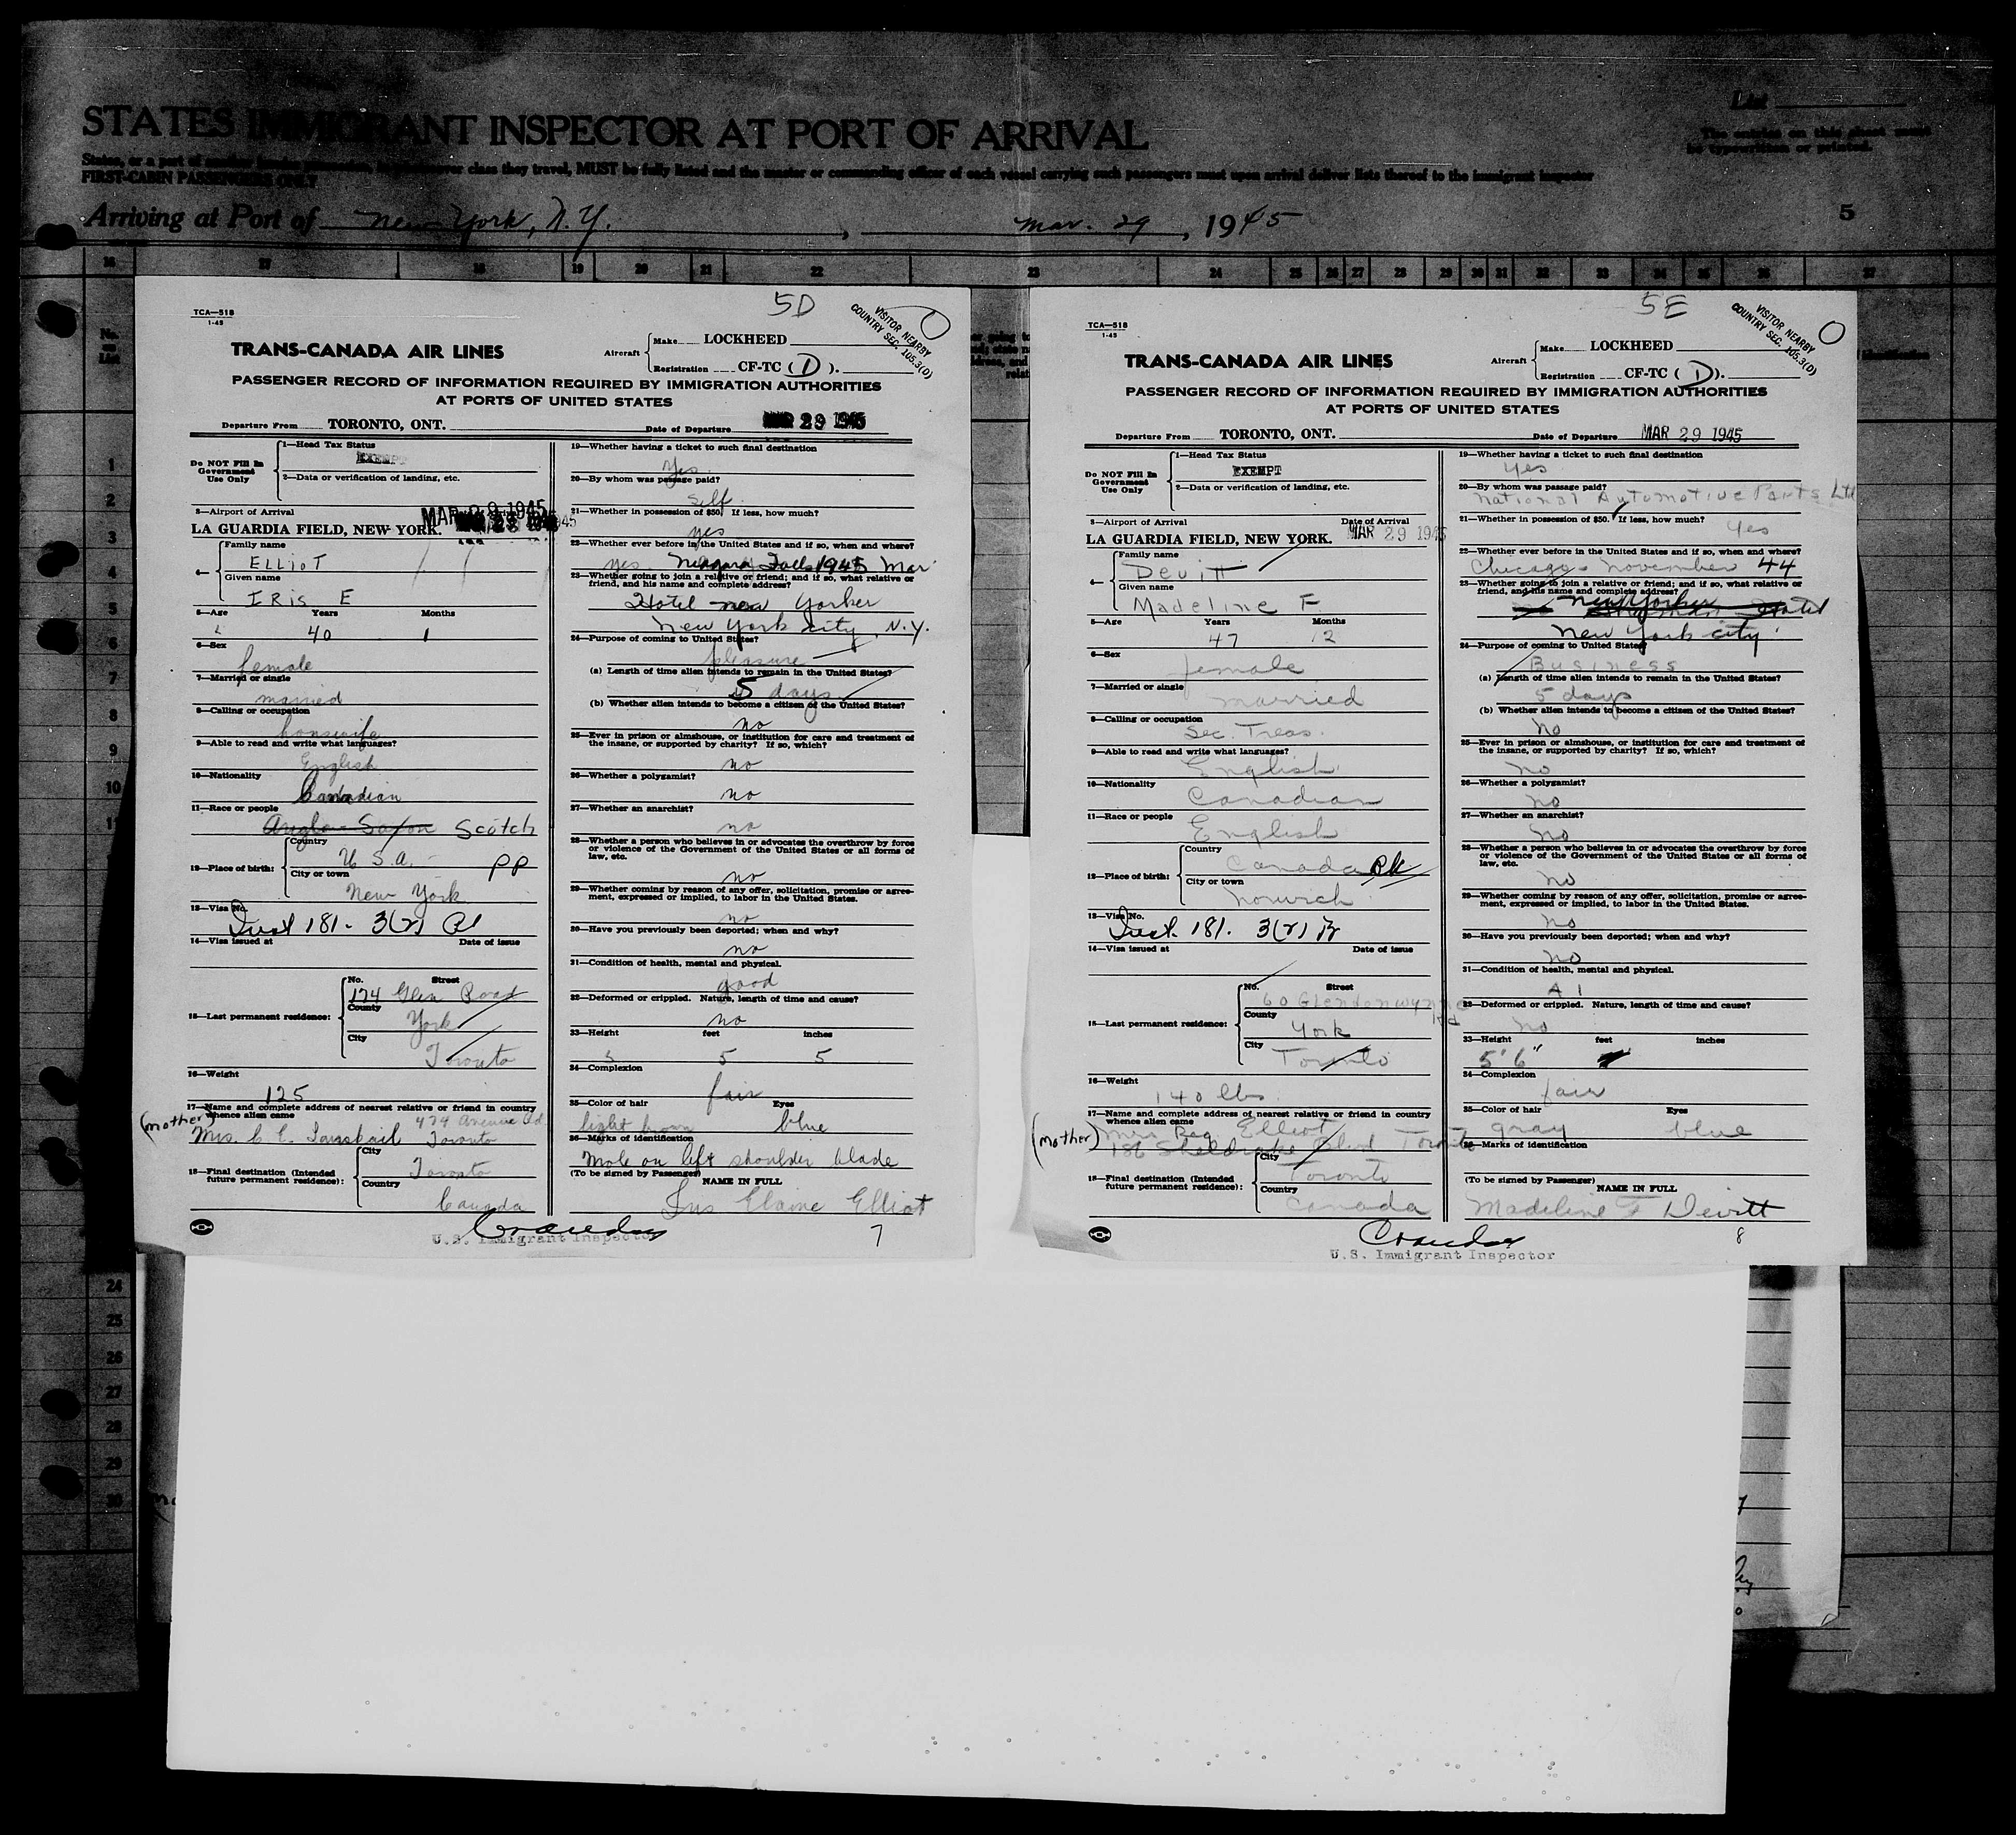 STATES IMMIGRANT INSPECTOR AT PORT OF ARRIVAL
List
The entries on this sheet must
be typewritten or printed.
FIRST-CABIN PASSENGERS ONLY
Arriving at Port of New York, N.Y. , Mar. 29 , 1945
5
16 17 18 19 20 21 22 23 24 25 26 27 28 29 30 31 32 33 34 35 36 37
No.
on
List
1
2
3
4
5
6
7
8
9
10
11
24
25
26
27
28
29
30
5D
TCA—518
1-45
VISITOR NEARBY
COUNTRY SEC. 105.3(D)
TRANS-CANADA AIR LINES
Aircraft
Make LOCKHEED
Registration CF-TC ( D ).
PASSENGER RECORD OF INFORMATION REQUIRED BY IMMIGRATION AUTHORITIES
AT PORTS OF UNITED STATES
Departure From TORONTO, ONT. Date of Departure MAR 29 1945
Do NOT Fill In
Government
Use Only
1—Head Tax Status
EXEMPT
2—Data or verification of landing, etc.
3—Airport of Arrival
LA GUARDIA FIELD, NEW YORK. MAR 29 1945
4—
Family name
ELLIOT
Given name
IRIS E
5—Age Years Months
40 1
6—Sex
female
7—Married or single
married
8—Calling or occupation
housewife
9—Able to read and write what languages?
English
10—Nationality
Canadian
11—Race or people
Anglo-Saxon Scotch
12—Place of birth:
Country
U.S.A. - PP
City or town
New York
13—Visa No.
181. 3(2)
14—Visa issued at Date of issue
15—Last permanent residence:
No. Street
174 Glen Road
County
York
City
Toronto
16—Weight
125
17—Name and complete address of nearest relative or friend in country
whence alien came
(mother) Mrs. C. E. 474 Avenue Rd.
Toronto
18—Final destination (Intended
future permanent residence):
City
Toronto
Country
Canada
19—Whether having a ticket to such final destination
Yes
20—By whom was passage paid?
Self
21—Whether in possession of $50. If less, how much?
yes
22—Whether ever before in the United States and if so, when and where?
yes Niagara Falls 1945 Mar.
23—Whether going to join a relative or friend; and if so, what relative or
friend, and his name and complete address?
Hotel New Yorker
New York City, N.Y.
24—Purpose of coming to United States?
pleasure
(a) Length of time alien intends to remain in the United States?
5 days
(b) Whether alien intends to become a citizen of the United States?
no
25—Ever in prison or almshouse, or institution for care and treatment of
the insane, or supported by charity? If so, which?
no
26—Whether a polygamist?
no
27—Whether an anarchist?
no
28—Whether a person who believes in or advocates the overthrow by force
or violence of the Government of the United States or all forms of
law, etc.
no
29—Whether coming by reason of any offer, solicitation, promise or agree-
ment, expressed or implied, to labor in the United States.
no
30—Have you previously been deported; when and why?
no
31—Condition of health, mental and physical.
good
32—Deformed or crippled. Nature, length of time and cause?
no
33—Height feet inches
5 5 5
34—Complexion
fair
35—Color of hair Eyes
light brown blue
36—Marks of identification
Mole on left shoulder blade
(To be signed by Passenger)
NAME IN FULL
Iris Elaine Elliot
U.S. Immigrant Inspector
7
5E
TCA—518
1-45
VISITOR NEARBY
COUNTRY SEC. 105.3(D)
TRANS-CANADA AIR LINES
Aircraft
Make LOCKHEED
Registration CF-TC ( D ).
PASSENGER RECORD OF INFORMATION REQUIRED BY IMMIGRATION AUTHORITIES
AT PORTS OF UNITED STATES
Departure From TORONTO, ONT. Date of Departure MAR 29 1945
Do NOT Fill In
Government
Use Only
1—Head Tax Status
EXEMPT
2—Data or verification of landing, etc.
3—Airport of Arrival Date of Arrival
LA GUARDIA FIELD, NEW YORK. MAR 29 1945
4—
Family name
Devitt
Given name
Madeline F.
5—Age Years Months
47 12
6—Sex
female
7—Married or single
married
8—Calling or occupation
Sec. Treas.
9—Able to read and write what languages?
English
10—Nationality
Canadian
11—Race or people
English
12—Place of birth:
Country
Canada
City or town
Norwich
13—Visa No.
181. 3(2)
14—Visa issued at Date of issue
15—Last permanent residence:
No. Street
60 Glendonwynne
Rd
County
York
City
Toronto
16—Weight
140 lbs.
17—Name and complete address of nearest relative or friend in country
whence alien came
(mother) Mrs Reg Elliot
186 Sheldrake Blvd Toronto
18—Final destination (Intended
future permanent residence):
City
Toronto
Country
Canada
19—Whether having a ticket to such final destination
yes
20—By whom was passage paid?
National Automotive Parts Ltd
21—Whether in possession of $50. If less, how much?
yes
22—Whether ever before in the United States and if so, when and where?
Chicago - November 44
23—Whether going to join a relative or friend; and if so, what relative or
friend, and his name and complete address?
New Yorker Hotel
New York City
24—Purpose of coming to United States?
Business
(a) Length of time alien intends to remain in the United States?
5 days
(b) Whether alien intends to become a citizen of the United States?
no
25—Ever in prison or almshouse, or institution for care and treatment of
the insane, or supported by charity? If so, which?
no
26—Whether a polygamist?
no
27—Whether an anarchist?
no
28—Whether a person who believes in or advocates the overthrow by force
or violence of the Government of the United States or all forms of
law, etc.
no
29—Whether coming by reason of any offer, solicitation, promise or agree-
ment, expressed or implied, to labor in the United States.
no
30—Have you previously been deported; when and why?
no
31—Condition of health, mental and physical.
A 1
32—Deformed or crippled. Nature, length of time and cause?
no
33—Height feet inches
5' 6"
34—Complexion
fair
35—Color of hair Eyes
gray blue
36—Marks of identification
(To be signed by Passenger)
NAME IN FULL
Madeline F Devitt
U.S. Immigrant Inspector
8